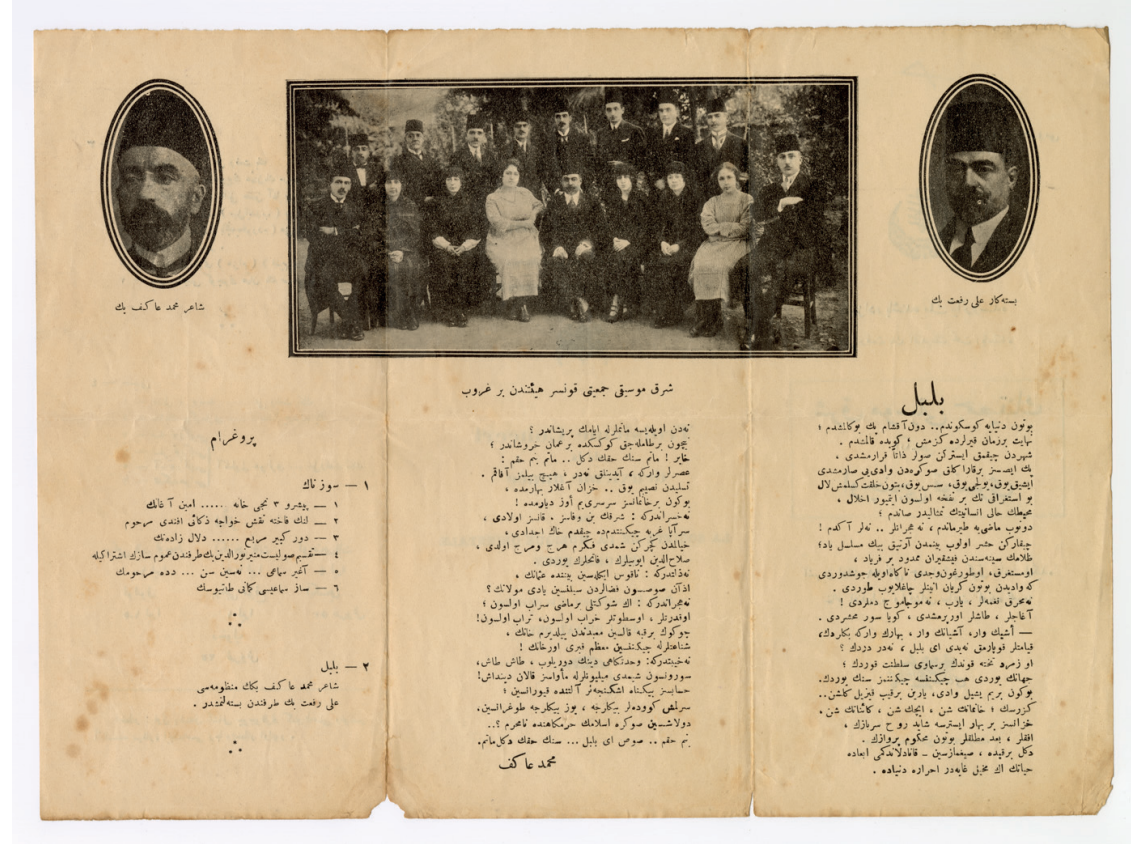 شاعر محمد عاكف بك
بسته‌كار على رفعت بك
شرق موسيقى جمعيتى قونسر هيئتندن بر غروپ
بلبل
بوتون دنيايه كوسكوندم.. دون آقشام پك بوكالمشدم ؛
نهايت برزمان قيرلرده كزمش ، كويده قالمشدم .
شهردن چيقمق ايستركن صولر ذاتاً قرارمشدى ،
پك ايصسز برقاراكلق صوكره‌دن وادى‌يى صارمشدى
ايشيق يوق، يولجى يوق، سس يوق، بتون خلقت كسلمش لال
بو استغراقى تك بر نفخه اولسون ايتميور اخلال .
محيطك حالى انسانيتك تمثاليدر صاندم ؛
دونوب ماضى‌يه طيرماندم ، نه هجرانلر .. نه‌لر آكدم !
چيقاركن حشر اولوب بينمدن آرتيق بيك مسلسل ياد؛
ظلامك سينه‌سندن فيشقيران ممدود بر فرياد ،
اومستغرق، اوطورغون وجدى ناكاه اويله جوشدوردى
كه واديدن بوتون كريان انينلر چاغلايوب طوردى .
نه محرق نغمه‌لر ، يارب ، نه موجاموج دملردى !
آغاجلر ، طاشلر اورپرمشدى ، كويا صور محشردى .
— أشيك وار، آشيانك وار ، بهارك واركه بكلردك،
قيامتلر قوپارمق نه‌يدى اى بلبل ، نه‌در دردك ؟
او زمرد تخته قوندك برسماوى سلطنت قوردك ؛
جهانك يوردى هپ چيكننسه چيكننمز سنك يوردك.
بوكون بريم يشيل وادى، يارين برقيپ قيزيل كلشن..
كزرسك ؛ خانمانك شن ، ايچك شن ، كائناتك شن .
خزانسز بر بهار ايسترسه شايد روح سربازك ،
افقلر ، بعد مطلقلر بوتون محكوم پروازك .
دكل برقيده ، صيغمازسين – قانادلاندكمى ابعاده
حياتك اك مخيل غايه‌در احراره دنياده .
نه‌دن اويله‌يسه ماتملرله ايامك پريشاندر ؟
نيچون برطامله‌جق كوكسكده برعمان خروشاندر ؟
خاير ! ماتم سنك حقك دكل .. ماتم بنم حقم :
عصرلر واركه ، آيدينلق نه‌در ، هيچ بيلمز آفاقم .
تسليدن نصيبم يوق .. خزان آغلار بهارمده ،
بوكون برخانمانسز سرسرى‌يم اوز ديارمده !
نه خسراندركه : شرقك بن وفاسز . قانسز اولادى ،
سراپا غربه چيكنتدم‌ده چيقدم خاك اجدادى ،
خيالمدن كچركن شمدى فكرم هرج ومرج اولدى .
صلاح‌الدين ايوبيلرك ، فاتحلرك يوردى .
نه ذلتدركه : ناقوس ايكله‌سين بيننده عثمانك ،
اذان صوصسون فضالردن سيلنسين يادى مولانك ؟
نه هجراندركه : اك شوكتلى برماضى سراب اولسون ؛
اوقدرتلر ، اوسطوتلر خراب اولسون، تراب اولسون!
چوكوك برقبه قالسين معبدندن ييلديرم خانك ،
شناعتلرله چيكننسين معظم قبرى اورخانك !
نه خيبتدركه: وحدتكاهى دينك دوريلوب ، طاش طاش،
سورونسون شيمدى ميليونلرله مأواسز قالان دينداش!
حسابسز بيكناه اشكنجه‌لر آلتنده قيورانسين ؛
سرلمش كووده‌لر بيكلرجه ، يوز بيكلرجه طوغرانسين.
دولاشسين صوكره اسلامك حرمكاهنده نامحرم ؟..
بنم حقم .. صوص اى بلبل ... سنك حقك دكل ماتم.
محمد عاكف
پروغرام
١ — سوز ناك
١ — پيشرو ٣ نجى خانه ...... امين آغانك
٢ — لنك فاخته نقش خواجه ذكائى افندى مرحوم
٣ — دور كبير مربع ...... دلال زاده‌نك
٤ —تقسيم صوليست منيرنورالدين بك طرفندن عموم سازك اشتراكيله
٥ — آغير سماعى ... نه‌سين سن ... دده مرحومك
٦ — ساز سماعيسى كمانى طاتيوسك
٢ — بلبل
شاعر محمد عاكف بكك منظومه‌سى
على رفعت بك طرفندن بسته‌لنمشدر .